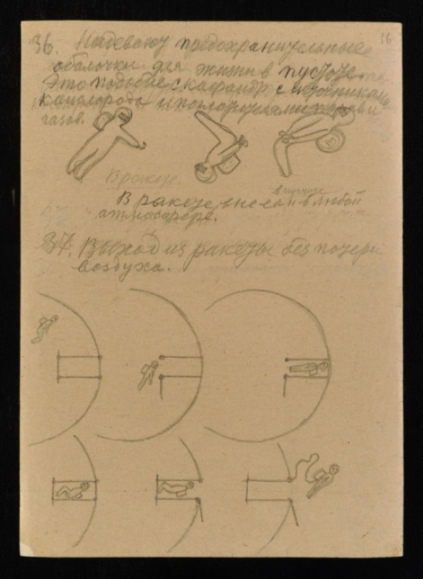 16
36. Надевают предохранительные
оболочки для жизни в пустоте
Это подобие скафандр с источниками
кислорода и поглотителями паров и
газов.
В ракете
В ракете, вне ея и в любой
атмосфере.
37. Выход из ракеты без потери
воздуха.